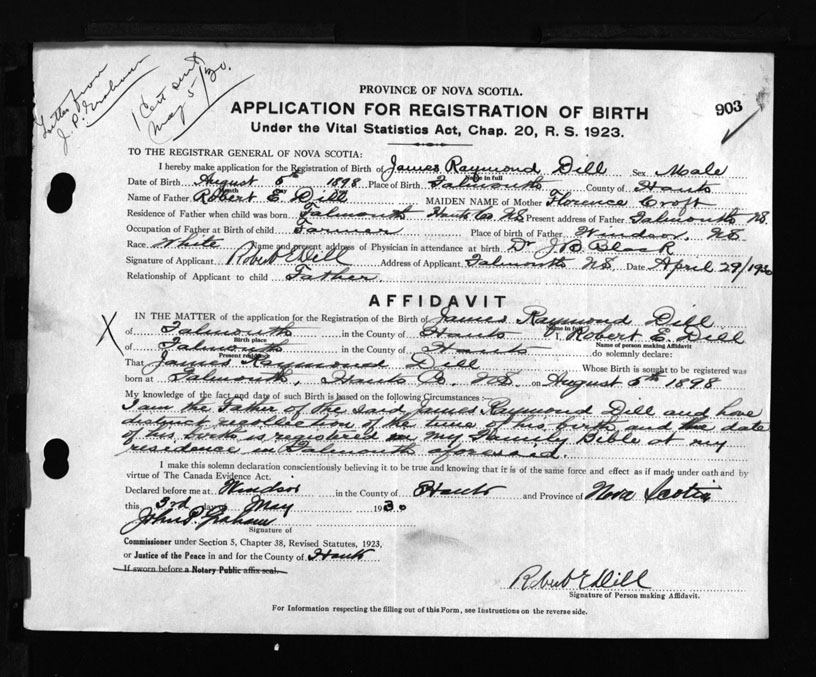 Letter from
J. P. Graham
1 Cert sent
May 5/30.
PROVINCE OF NOVA SCOTIA.
903
APPLICATION FOR REGISTRATION OF BIRTH
Under the Vital Statistics Act, Chap. 20, R. S. 1923.
TO THE REGISTRAR GENERAL OF NOVA SCOTIA:
I hereby make application for the Registration of Birth of James Raymond Dill Sex Male
Name in full
Date of Birth August 5th 1898 Place of Birth Falmouth County of Hants
Month
Name of Father Robert E. Dill MAIDEN NAME of Mother Florence Croft
Residence of Father when child was born Falmouth Hants Co NS Present address of Father Falmouth NS.
Occupation of Father at Birth of child Farmer Place of birth of Father Windsor, NS.
Race White Name and present address of Physician in attendance at birth Dr J. B. Black
Signature of Applicant Robert E Dill Address of Applicant Falmouth NS. Date April 29/1930
Relationship of Applicant to child Father
AFFIDAVIT
X
IN THE MATTER of the application for the Registration of the Birth of James Raymond Dill
Name in full
of Falmouth in the County of Hants I, Robert E. Dill
Birth place
Name of person making Affidavit
of Falmouth in the County of Hants do solemnly declare:
Present residence
That James Raymond Dill Whose Birth is sought to be registered was
born at Falmouth, Hants Co. NS. on August 5th 1898
My knowledge of the fact and date of such Birth is based on the following Circumstances :—
I am the Father of the said James Raymond Dill and have
distinct recollection of the time of his birth and the date
of his birth is registered in my Family Bible at my
residence in Falmouth aforesaid.
I make this solemn declaration conscientiously believing it to be true and knowing that it is of the same force and effect as if made under oath and by
virtue of The Canada Evidence Act.
Declared before me at Windsor in the County of Hants and Province of Nova Scotia
this 3rd day of May 1930
John P. Graham
Signature of
Commissioner under Section 5, Chapter 38, Revised Statutes, 1923,
or Justice of the Peace in and for the County of Hants
If sworn before a Notary Public affix seal.
Robert E Dill
Signature of Person making Affidavit.
For Information respecting the filling out of this Form, see Instructions on the reverse side.